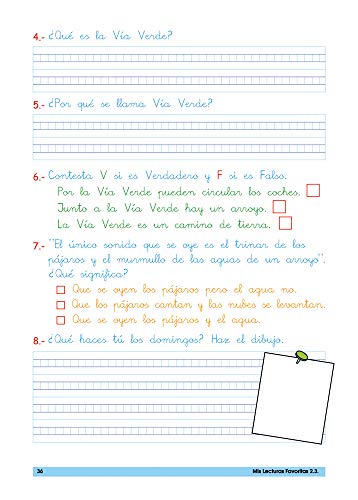 4.- ¿Qué es la Vía Verde?
5.- ¿Por qué se llama Vía Verde?
6.- Contesta V si es Verdadero y F si es Falso.
Por la Vía Verde pueden circular los coches.
Junto a la Vía Verde hay un arroyo.
La Vía Verde es un camino de tierra.
7.- "El único sonido que se oye es el trinar de los
pájaros y el murmullo de las aguas de un arroyo".
¿Qué significa?
Que se oyen los pájaros pero el agua no.
Que los pájaros cantan y las nubes se levantan.
Que se oyen los pájaros y el agua.
8.- ¿Qué haces tú los domingos? Haz el dibujo.
36 Mis Lecturas Favoritas 2.3.